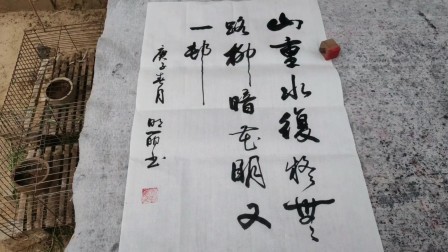 山重水復疑無
路柳暗花明又
一邨
庚子春月
明书